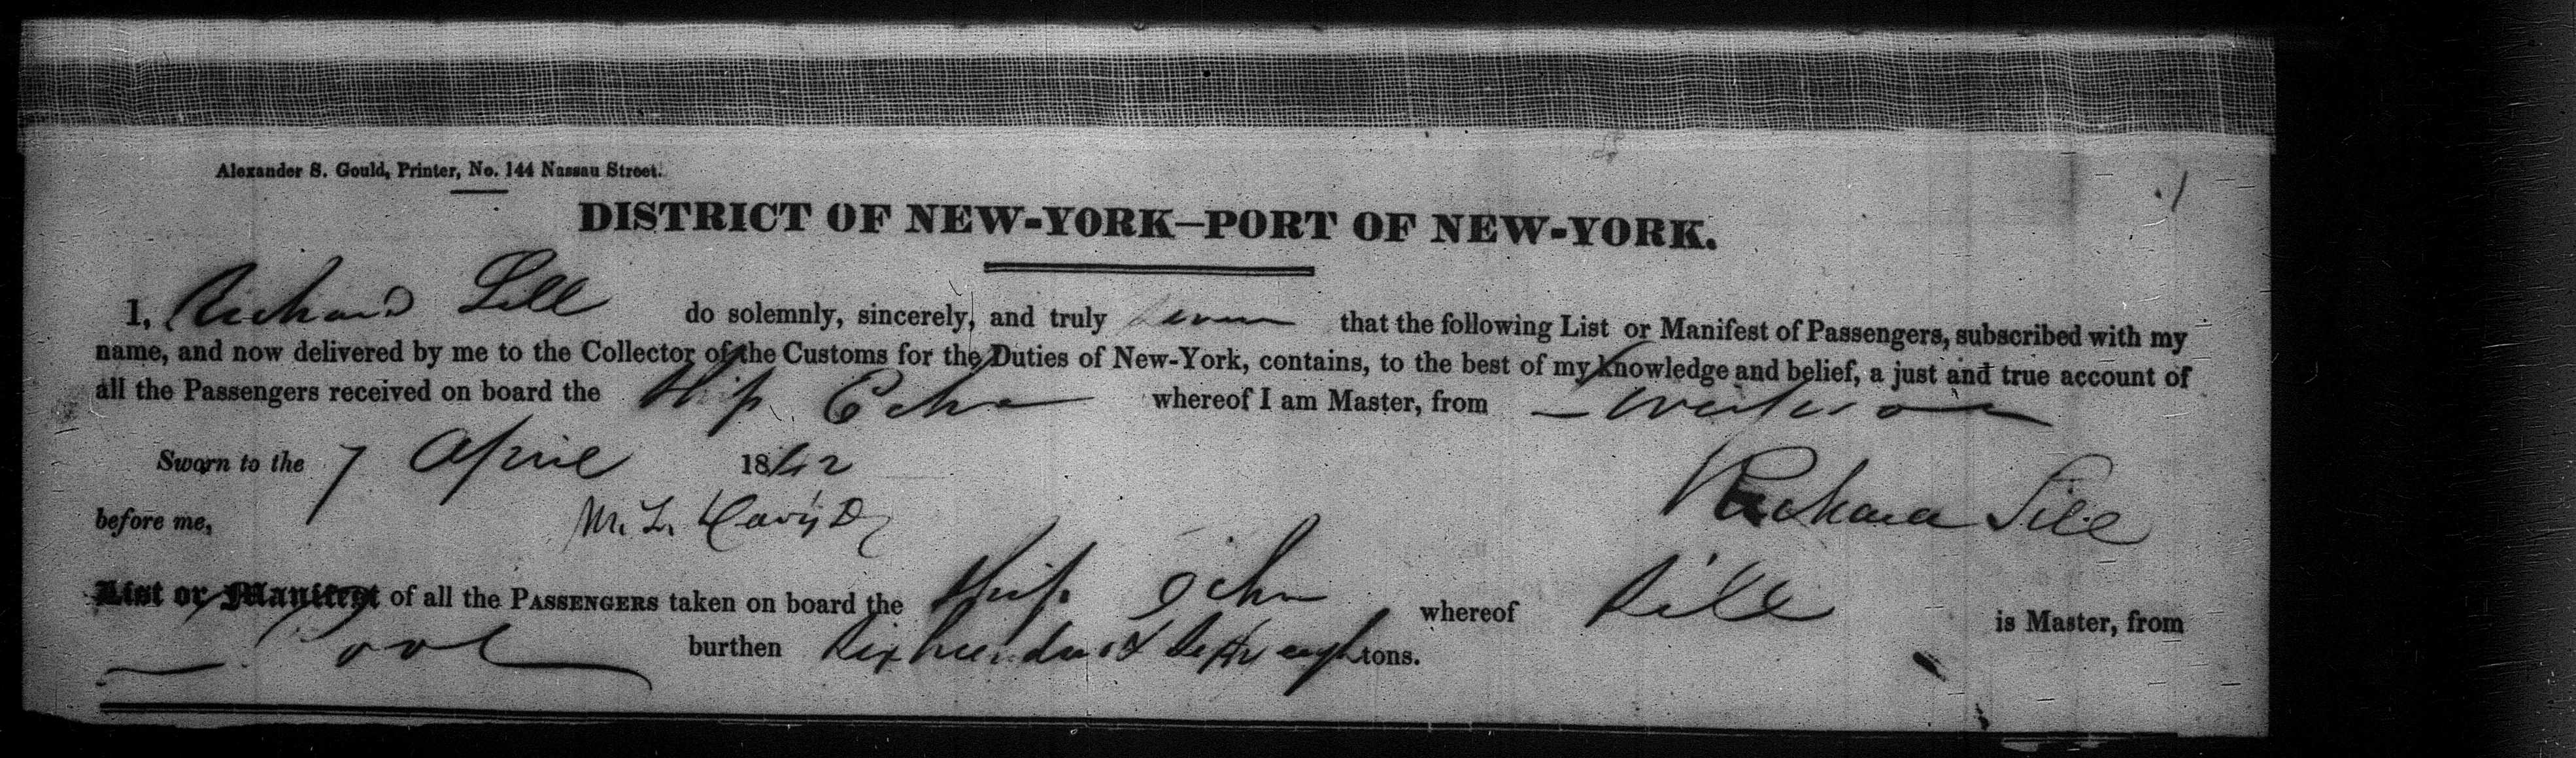 Alexander S. Gould, Printer, No. 144 Nassau Street.
DISTRICT OF NEW-YORK—PORT OF NEW-YORK.
I, Richard Sill do solemnly, sincerely, and truly swear that the following List or Manifest of Passengers, subscribed with my
name, and now delivered by me to the Collector of the Customs for the Duties of New-York, contains, to the best of my knowledge and belief, a just and true account of
all the Passengers received on board the Ship Echo whereof I am Master, from Liverpool
Sworn to the 7 April 1842 Richard Sill
before me,
List or Manifest of all the PASSENGERS taken on board the Ship Echo whereof Sill is Master, from
burthen Six hundred tons.